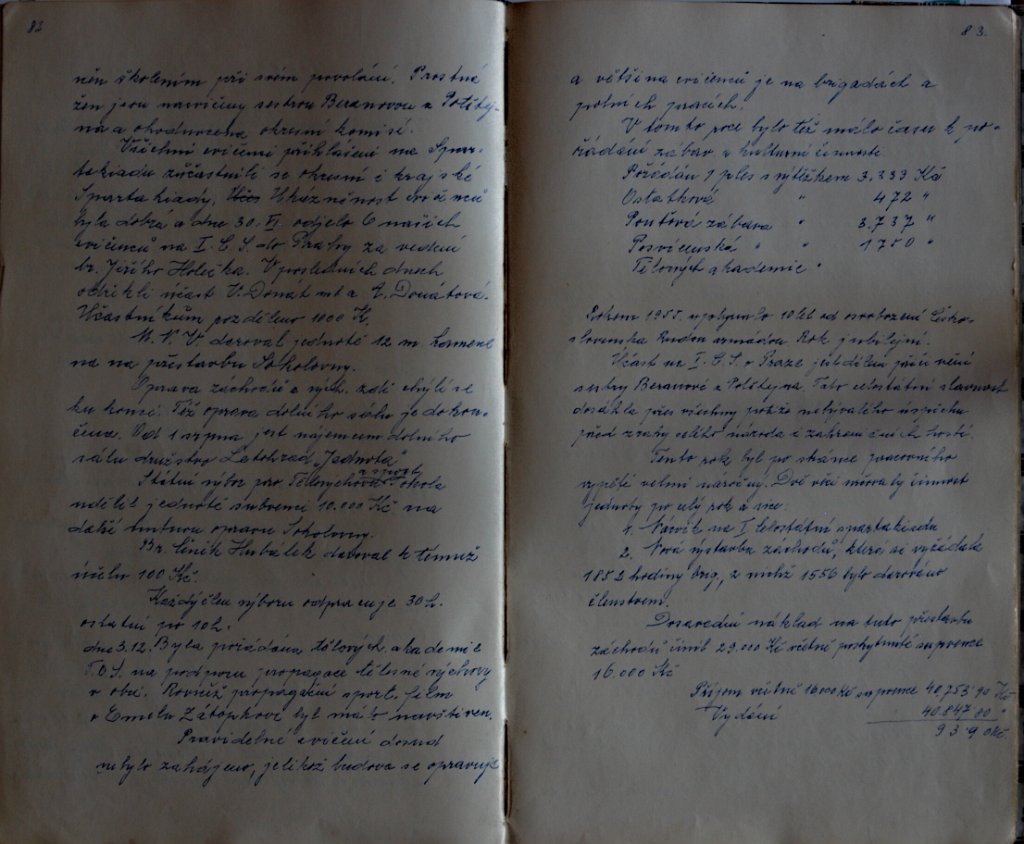 82
něn školením při svém povolání. Prostná
žen jsou nacvičena sestrou Beranovou a Poštej-
na a ohodnocena okresní komisí.
Všichni cvičenci přihlášeni na Spar-
takiadu zúčastnili se okresní i krajské
Spartakiady. Ukázněnost cvičenců
byla dobrá a dne 30. VI. odjelo 6 našich
cvičenců na I. C. S. do Prahy za vedení
br. Jiřího Holečka. V posledních dnech
odřekli účast V. Donát ml a A. Donátová.
Účastníkům rozděleno 1000 K.
M. N. V. daroval jednotě 12 m. kamene
na na přestavbu Sokolovny.
Oprava záchodů a zdi chýlí se
ku konci. Též oprava dolního sálu je dokon-
čena. Od 1 srpna jest nájemcem dolního
sálu družstvo Letohrad „Jednota"
Státní výbor pro Tělesnýchovu a sport Sokola
udělil jednotě subvenci 10.000 Kč na
další nutnou opravu Sokolovny.
Br. Čeněk Hubálek daroval k témuž
účelu 100 Kč.
Každý člen výboru odpracuje 30 h.
ostatní po 10 h.
dne 3.12. Byla pořádána tělocvič. akademie
na podporu propagace tělesné výchovy
v obci. Rovněž propagační sport. film
o Emilu Zátopkovi byl málo navštíven.
Pravidelné cvičení dosud
nebylo zahájeno, jelikož budova se opravuje
83.
a většina cvičenců je na brigadách a
polních pracích.
V tomto roce bylo též málo času k po-
řádání zábav a kulturní činnosti
Pořádán 1 ples s výtěžkem 3.333 Kč
Ostatková " 472 "
Pouťové zábava " 3.737 "
Posvícenská " " 1750 "
Tělocvič akademie "
Rokem 1955. uplynulo 10 let od osvobození Česko-
slovenska Rudou armádou. Rok jubilejní.
Účast na I. C. S. v Praze jest dílem přičinění
sestry Beranové a Poštejna. Tato celostátní slavnost
dosáhla přes všechny potíže nebývalého úspěchu
před zraky celého národa i zahraničních hostí.
Tento rok byl po stránce pracovního
vypětí velmi náročný. Dvě věci mívaly činnost
jednoty po celý rok a sice:
1. Nácvik na I. Celostátní spartakiadu
2. Nová výstavba záchodů, která si vyžádala
1852 hodiny brig, z nichž 1556 bylo darováno
členstvem.
Dosavadní náklad na tuto přestavbu
záchodů činil 29.000 Kč včetně poskytnuté supvence
16.000 Kč
Příjem včetně 16000 Kč supvence 40.753 90 Kč
Vydání 40.847 80 "
93 90 Kč.